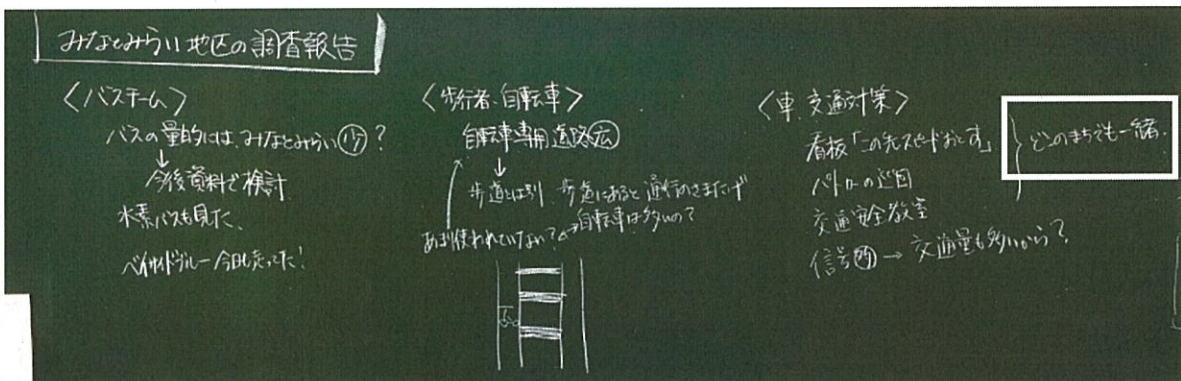 みなとみらい地区の調査報告
〈バスチーム〉
バスの量的には、みなとみらい少?
↓
今後資料で検討
水素バスも見た、
ベイサイドブルー今日も走ってた!
〈歩行者、自転車〉
自転車専用道路広
↓
歩道とは別 歩道にあると通行のさまたげ
あまり使われていない? 自転車は多いの?
〈車、交通対策〉
看板「この先スピードおとす」
パトカーの巡回
交通安全教室
信号多 → 交通量も多いから?
どこのまちでも一緒.